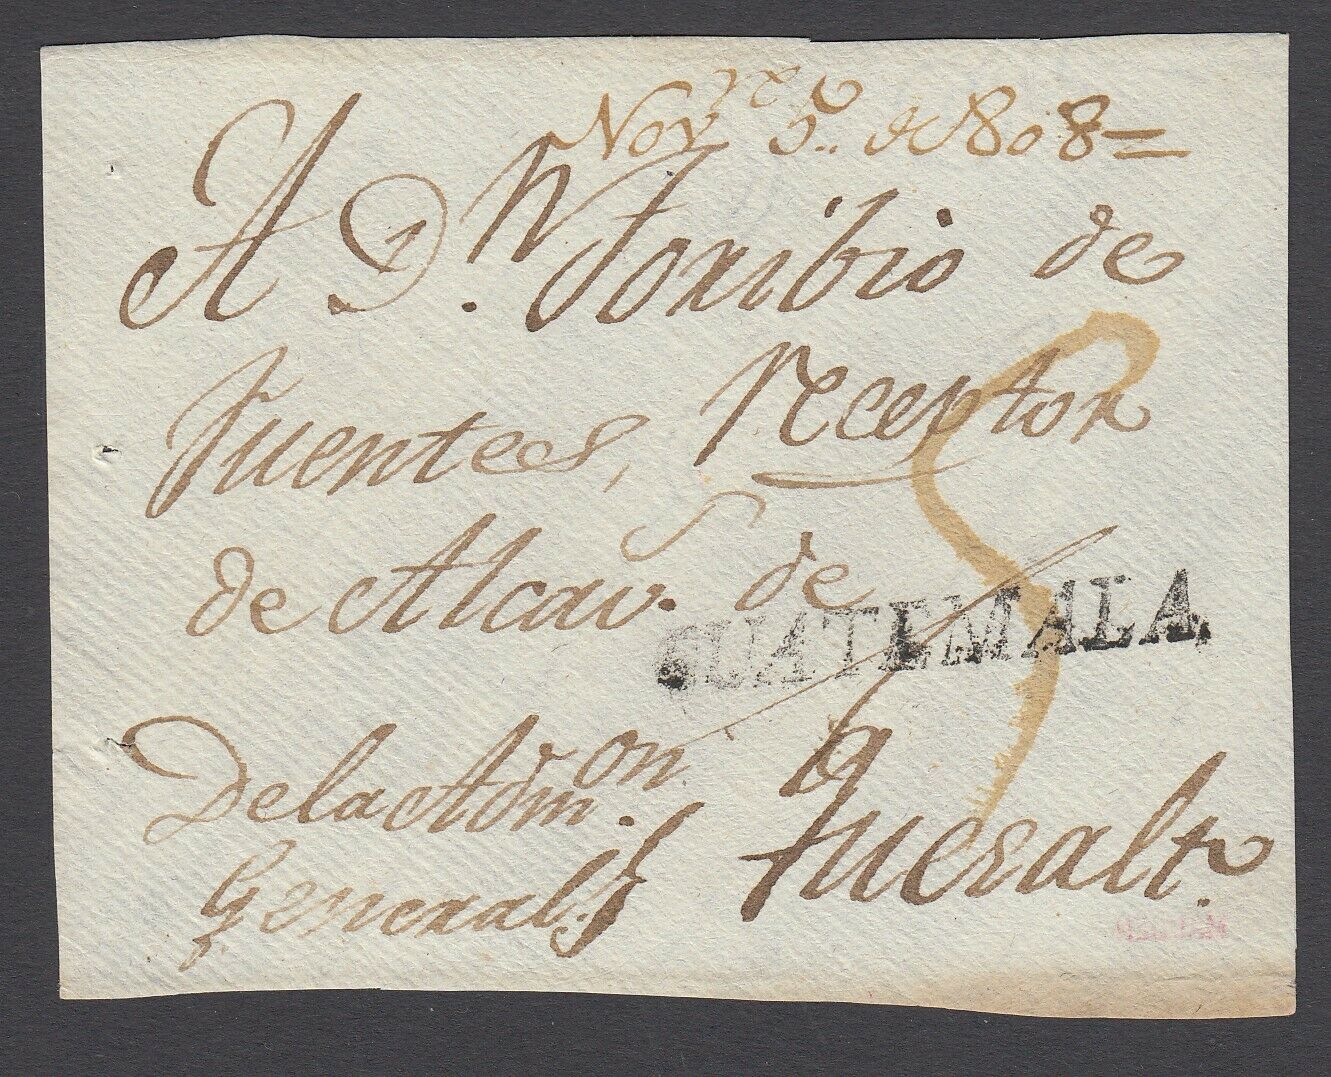 Nov.re 5.. de 1808=
A D.n Toribio de
Fuentes, receptor
de Alcav.s de
GUATEMALA
Dela Adm.on
General.